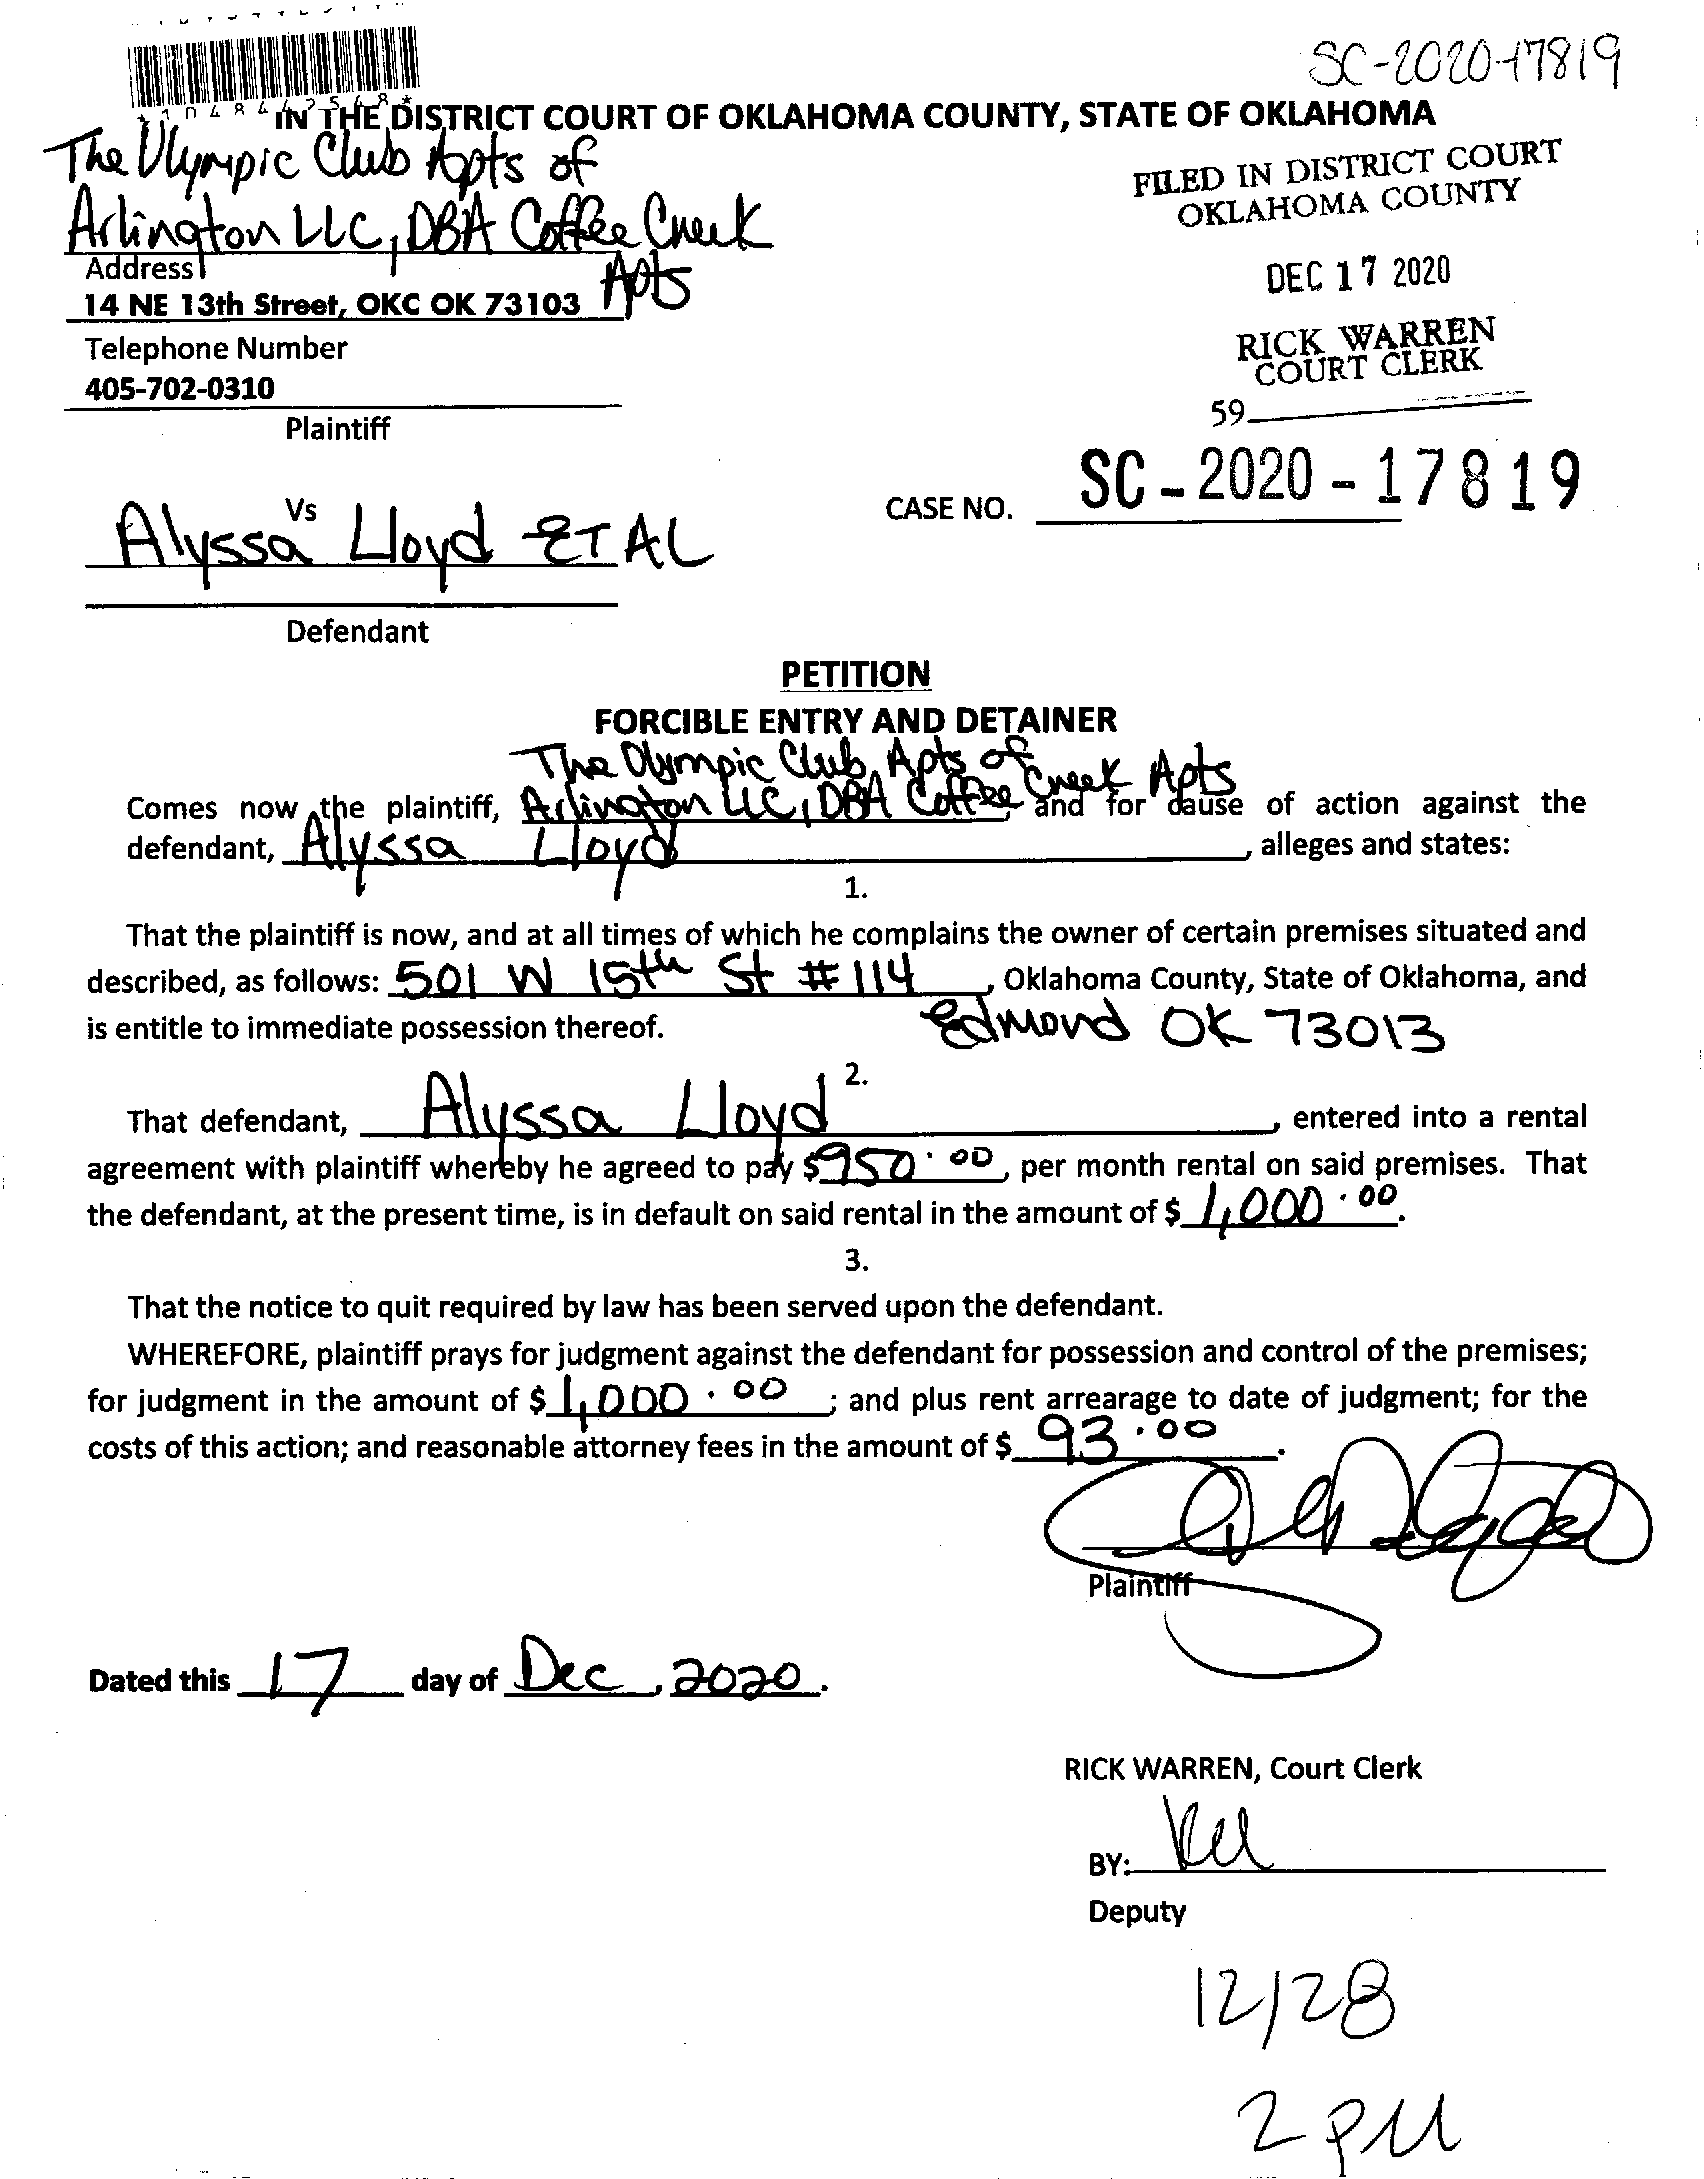 SC-2020-17819
IN THE DISTRICT COURT OF OKLAHOMA COUNTY, STATE OF OKLAHOMA
The Olympic Club Apts of
Arlington LLC, DBA Coffee Creek
Apts
Address
14 NE 13th Street, OKC OK 73103
Telephone Number
405-702-0310
Plaintiff
FILED IN DISTRICT COURT
OKLAHOMA COUNTY
DEC 17 2020
RICK WARREN
COURT CLERK
59
Vs
Alyssa Lloyd ET AL
Defendant
CASE NO. SC-2020-17819
PETITION
FORCIBLE ENTRY AND DETAINER
The Olympic Club Apts of
Comes now the plaintiff, Arlington LLC, DBA Coffee Creek Apts, and for cause of action against the
defendant, Alyssa Lloyd, alleges and states:
1.
That the plaintiff is now, and at all times of which he complains the owner of certain premises situated and
described, as follows: 501 W 15th St #114, Oklahoma County, State of Oklahoma, and
is entitle to immediate possession thereof. Edmond OK 73013
2.
That defendant, Alyssa Lloyd, entered into a rental
agreement with plaintiff whereby he agreed to pay $950.00, per month rental on said premises. That
the defendant, at the present time, is in default on said rental in the amount of $ 1,000.00.
3.
That the notice to quit required by law has been served upon the defendant.
WHEREFORE, plaintiff prays for judgment against the defendant for possession and control of the premises;
for judgment in the amount of $ 1,000.00; and plus rent arrearage to date of judgment; for the
costs of this action; and reasonable attorney fees in the amount of $ 93.00.
Plaintiff
Dated this 17 day of Dec, 2020.
RICK WARREN, Court Clerk
BY:
Deputy
12/28
2 PM